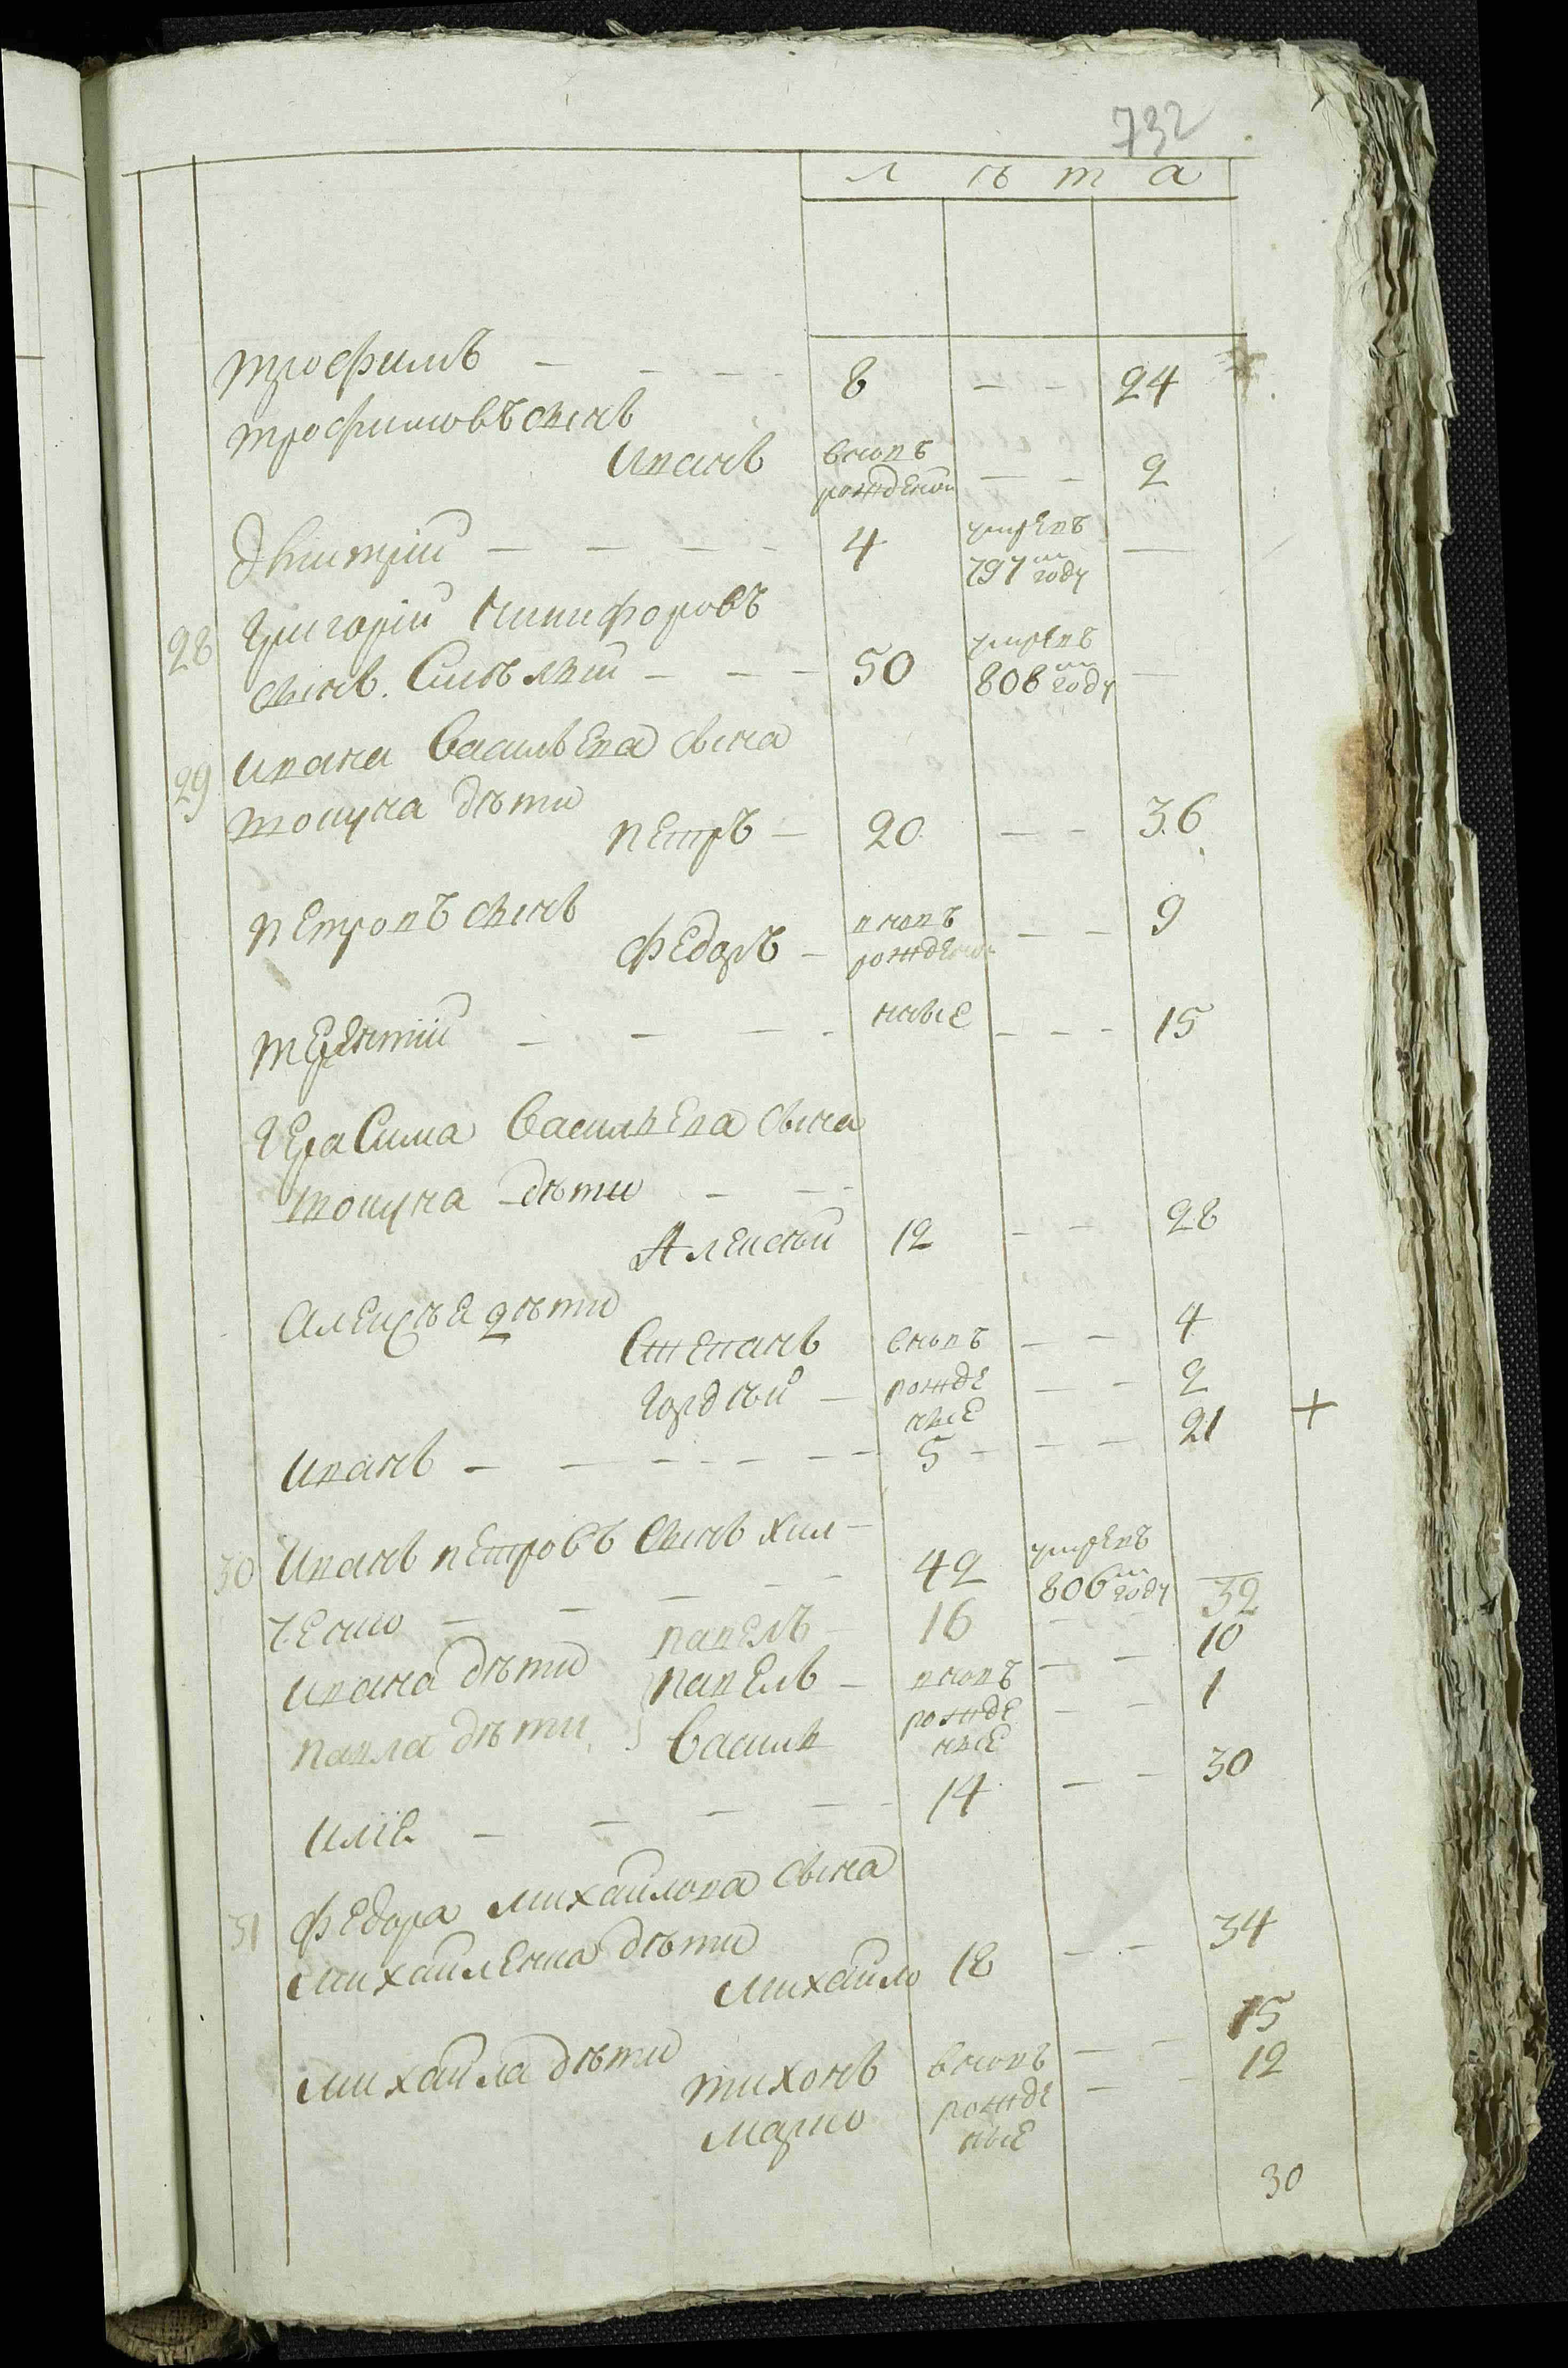 732
лѣта
Трофимъ - - - - 8 - - 24
Трофимовъ сынъ
Иванъ вновь рожденой - - 2
Дмитрий - - - - 4 умре въ 797м году —
28 Григорий Никифоровъ
сынъ - - - 50 умре въ 808м году —
29 Ивана Васильева сына
дѣти
Петръ - 20 - - 36
Петровъ сынъ
Федоръ - вновь рожденой - - 9
Терентий - - - - ные - - - 15
Герасима Васильева сына
дѣти - - -
Алексѣй 12 - - 28
Алексѣя дѣти
Степанъ вновь - - 4
Гордѣй - рожденые - - 2
Иванъ - - - - - - - 5 - - - 21 +
30 Иванъ Петровъ сынъ Хил-
ченко - - - - - 42 умре въ 806м году —
Ивана дѣти Павелъ - 16 - - 32
Павла дѣти Павелъ - вновь - - 10
Василь рожденые - - 1
Илïе - - - - - 14 - - 30
31 Федора Михайлова сына
Михайленка дѣти
Михайло 18 - - 34
Михайла дѣти
Тихонъ вновь - - 15
Марко рожденые - - 12
30